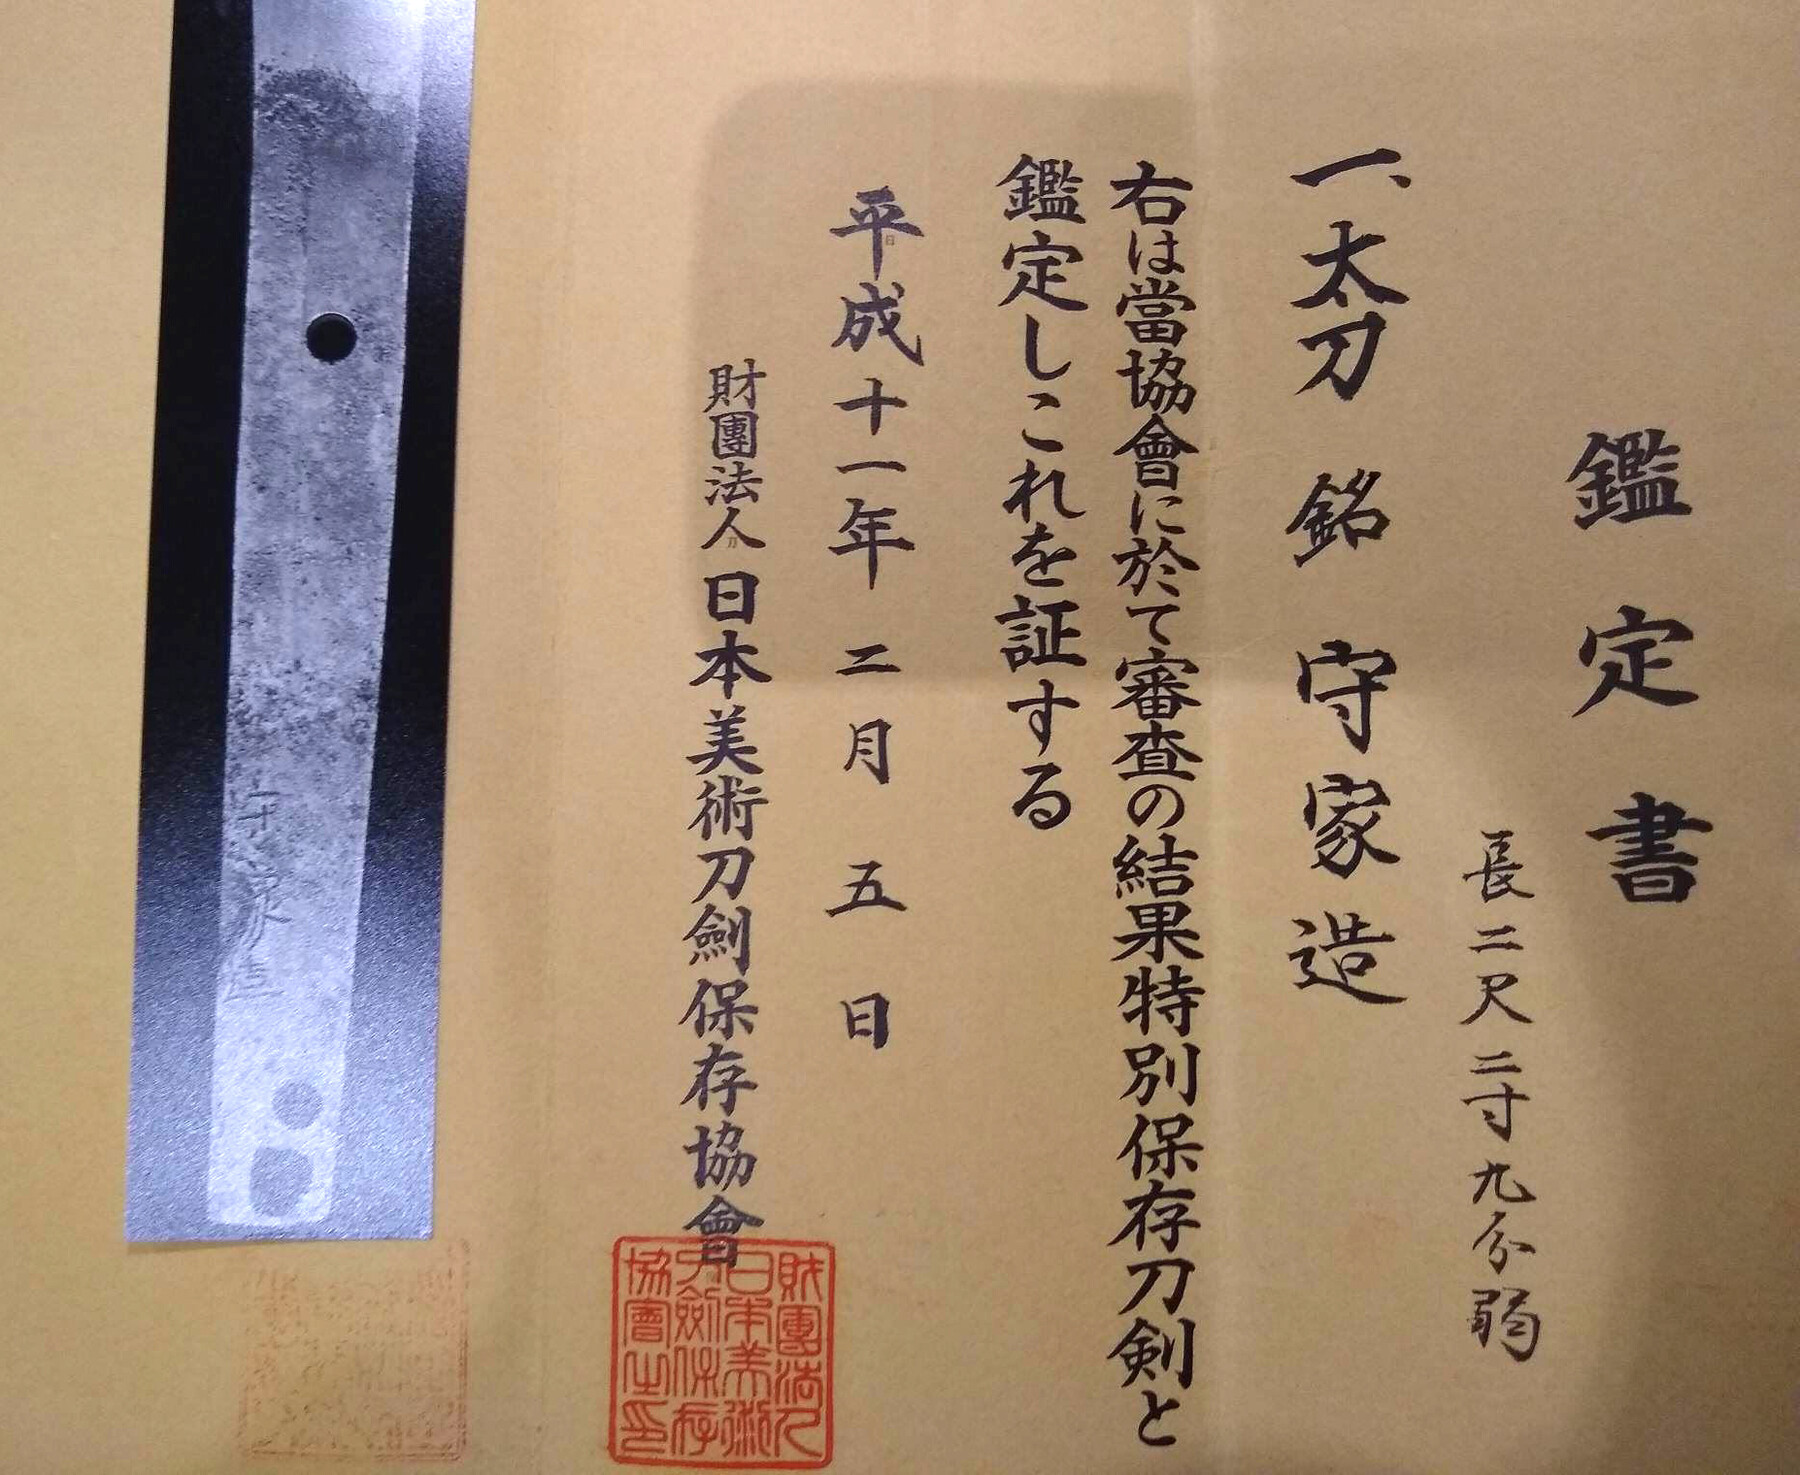 鑑定書
長二尺二寸九分弱
一、太刀 銘 守家造
右は當協會に於て審査の結果特別保存刀剣と
鑑定しこれを証する
平成十一年二月五日
財團法人 日本美術刀劍保存協會
財團法人
日本美術
刀劍保存
協會之印
守家造